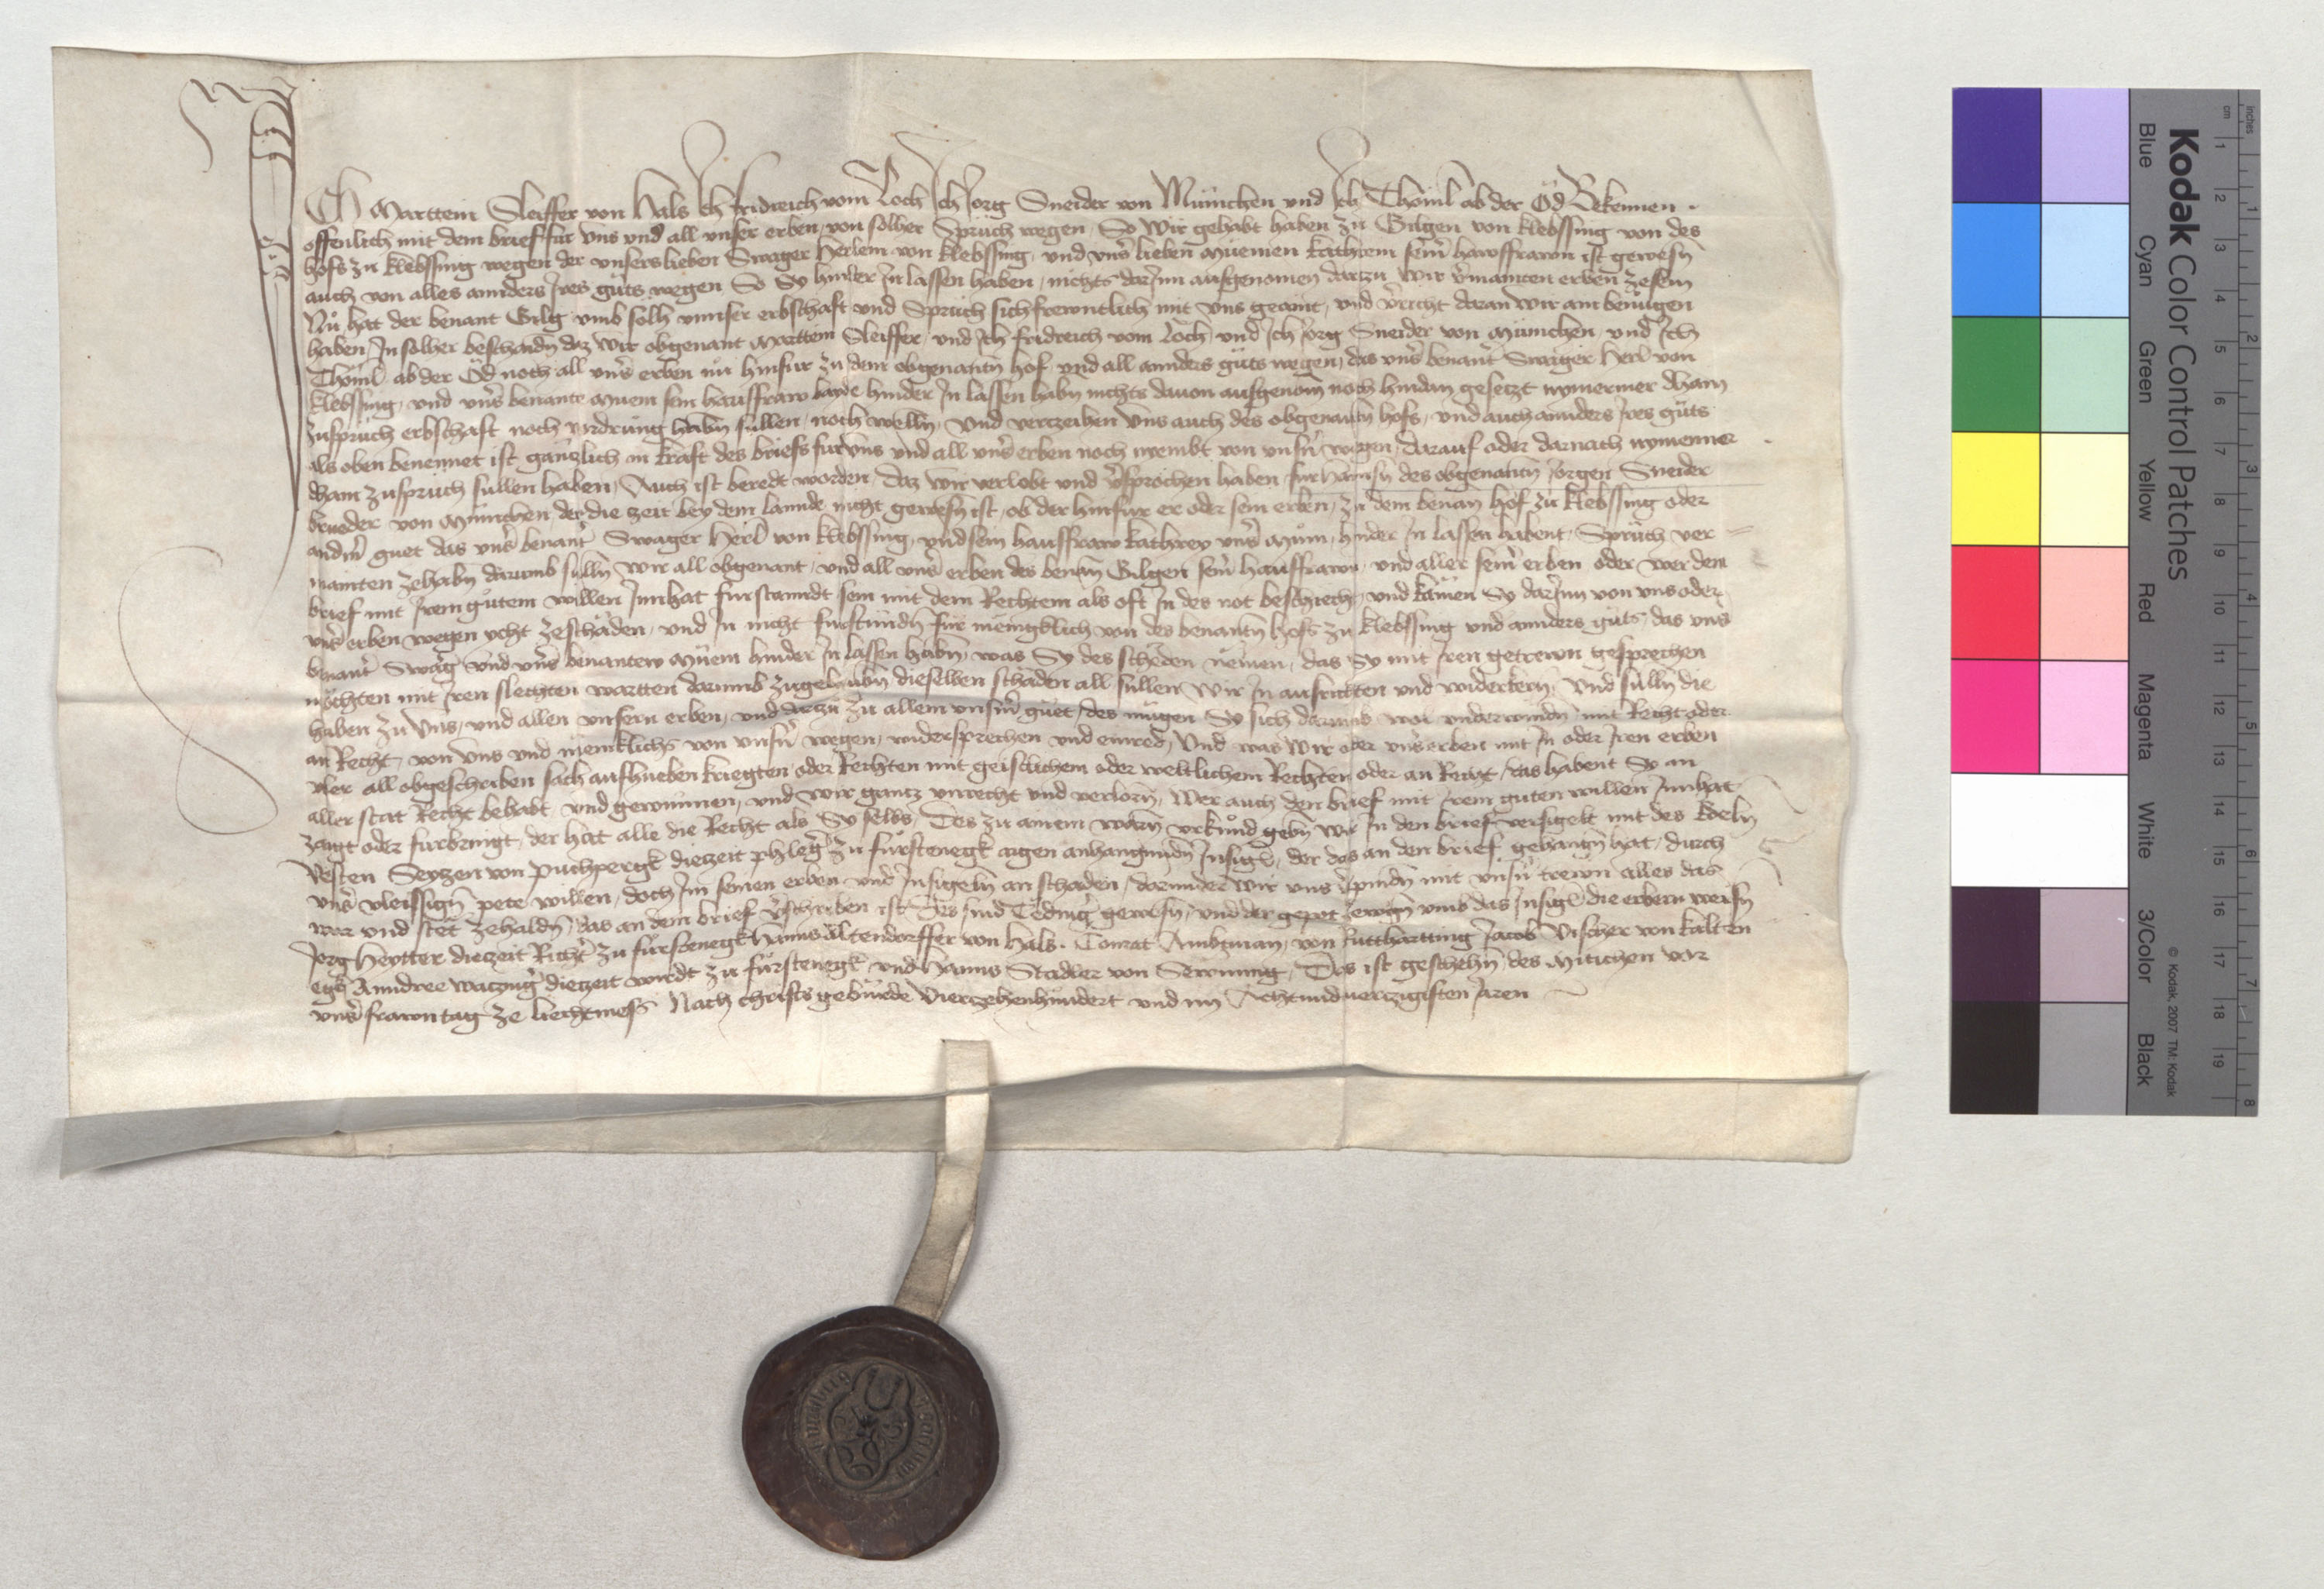 ICH Marttein Sleiffer von Hals Ich fridreich vom Loch Ich Jorg Sneider von München und Ich Thöml ab der Öd Bekennen
offenlich mit dem brief für uns und all unser erben von solher Sprüch wegen So wir gehabt haben zu Gilgen von Klebssing von des
hofs zu Klebssing wegen der unsers lieben Swager Herlein von Klebssing und uns lieben Muemen Kathrein seiner hawsffrawn ist gewesn
auch von alles annders Irs güts wegen So Sy hinder In lassen haben nichts darInn aufgenomen darzu wir vermainten erben zesein
Nu hat der benant Gilg umb solh unnser erbschaft und Sprüch sich frewntlich mit uns geaint und vericht daran wir ain benügen
haben In solher beschaidn daz wir obgenant Marttein Sleiffer und Ich fridreich vom Loch und Ich Jorg Sneider von München und Ich
Thöml ab der Öd noch all uns erben nu hinfur zu dem obgenantn hof und all annders güts wegen das uns benant Swager Herl von
Klebssing und uns benante Muem sein hausffraw bayde hinder In lassen habn nichts davon aufgenom noch hindan gesetzt nymermer dhain
zuspruch erbschaft noch vordrung habn sullen noch welln und verczeihen uns auch des obgenantn hofs und auch annders Irs güts
als oben benennet ist gäntzlich in kraft des briefs fur uns und all uns erben noch niembt von unsern wegen darauf oder darnach nymermer
dhain zuspruch sullen haben Auch ist beredt worden daz wir verlobt und versprochen haben fur Hannsn des obgenantn Jorgen Sneider
brueder von München der die zeit bey dem lannde nicht gewesn ist ob der hinfur er oder sein erben zu dem benan hof zu Klebssing oder
anderm guet das uns benant Swager Herl von Klebssing und sein hausffraw Kathrey uns Mum hinder In lassen habent Sprüch ver
mainten zehabn darumb sulln wir all obgenant und all uns erben des benan Gilgen seiner hausffrawn und aller seiner erben oder wer den
brief mit Irem gutem willen Innhat furstanndt sein mit dem Rechtem als oft In des not beschiecht und kämen Sy darInn von uns oder
uns erben wegen ycht zeschaden und In nicht furstündn für meingklich von des benantn hofs zu Klebssing und annders güts das uns
benant Swag und uns benantew Muem hinder In lassen habn was Sy des scheden nemen das Sy mit Iren getrewn gesprechen
möchten mit Iren slechten wartten darumb zugelaubn dieselben schaden all sullen wir In ausrichten und widerkern und sulln die
haben zu uns und allen unsern erben und darzu zu allem unserm guet des mügen Sy sich darumb wol underwindn mit Recht oder
an Recht von uns und meniklichs von unsern wegen widersprechen und einred Und was wir oder uns erben mit In oder Iren erben
uber all obgeschriben sach aufhueben kriegten oder Rechten mit geistlichem oder weltlichem Rechten oder an Recht das habent Sy an
aller stat Recht behabt und gewunnen und wir gantz unrecht und verlorn Wer auch den brief mit Irem guten willen Innhat
zaigt oder furbringt der hat alle die Recht als Sy selbs Des zu ainem warn urkund gebn wir In den brief versigelt mit des Edeln
Vesten Seytzen von Puchpergk diezeit phleger zu fürstenegk aigen anhangundn Insigl der das an den brief gehangn hat durch
uns vleissign pete willen doch Im seinen erben und Insigeln an schaden darunder wir uns verpindn mit unsern trewn alles das
war und stet zehaldn das an dem brief verschriben ist Des sind Tedinger gewesn und der gepet zewgn umb das Insigl die erbern weisn
Jorg Heytter diezeit Richter zu fürstenegk Hanns Altendorffer von Hals Conrat Ambtman von Jacob Vischer von Kalten
egk Anndree diezeit wirdt zu fürstenegk und Hanns Stadler von Das ist geschehn des Mitichen vor
unser frawn tag ze liechtmess Nach christs gebürde Vierzehenhundert und im Achtundvierzigisten Jaren
Kodak Color Control Patches
Blue Cyan Green Yellow Red Magenta White 3/Color Black
© Kodak, 2007 TM: Kodak
cm 1 2 3 4 5 6 7 8 9 10 11 12 13 14 15 16 17 18 19
inches 1 2 3 4 5 6 7 8